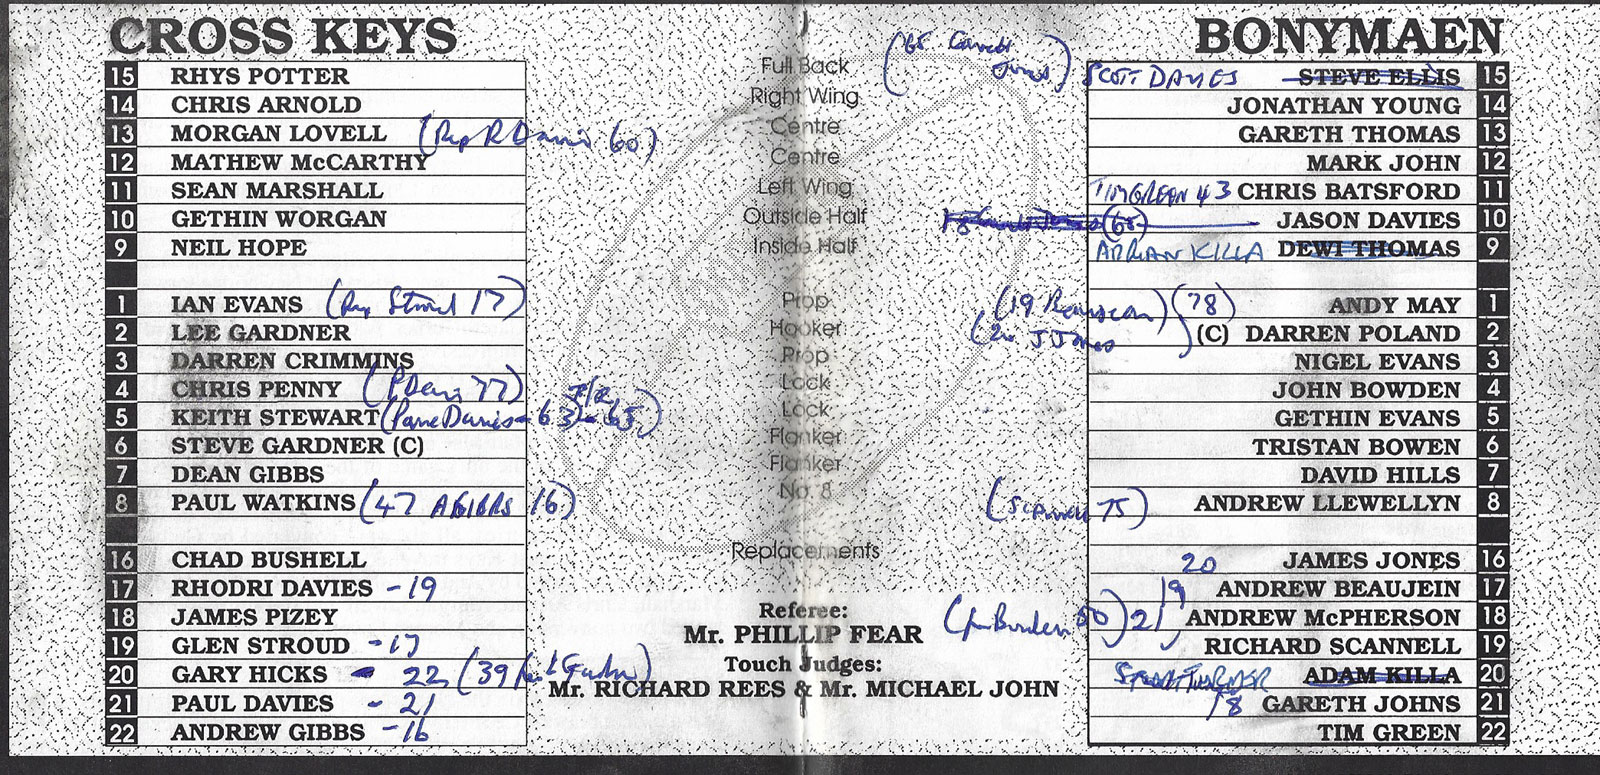 CROSS KEYS
15 RHYS POTTER
14 CHRIS ARNOLD
13 MORGAN LOVELL (Rep R Davies 60)
12 MATHEW McCARTHY
11 SEAN MARSHALL
10 GETHIN WORGAN
9 NEIL HOPE
1 IAN EVANS (Rep Stroud 17)
2 LEE GARDNER
3 DARREN CRIMMINS
4 CHRIS PENNY (P Davis 77)
5 KEITH STEWART (Paul Davies - 63) - 65)
F/R
6 STEVE GARDNER (C)
7 DEAN GIBBS
8 PAUL WATKINS (47 A GIBBS 16)
16 CHAD BUSHELL
17 RHODRI DAVIES - 19
18 JAMES PIZEY
19 GLEN STROUD - 17
20 GARY HICKS - 22 (39
21 PAUL DAVIES - 21
22 ANDREW GIBBS - 16
Full Back
Right Wing
Centre
Centre
Left Wing
Outside Half
Inside Half
Prop
Hooker
Prop
Lock
Lock
Flanker
Flanker
No. 8
Replacements
Referee:
Mr. PHILLIP FEAR
Touch Judges:
Mr. RICHARD REES & Mr. MICHAEL JOHN
BONYMAEN
(65 Gareth
Jones)
SCOTT DAVIES STEVE ELLIS 15
JONATHAN YOUNG 14
GARETH THOMAS 13
MARK JOHN 12
TIM GREEN 43 CHRIS BATSFORD 11
(65) JASON DAVIES 10
ADRIAN KILLA DEWI THOMAS 9
(19 (78) ANDY MAY 1
J Jones (C) DARREN POLAND 2
NIGEL EVANS 3
JOHN BOWDEN 4
GETHIN EVANS 5
TRISTAN BOWEN 6
DAVID HILLS 7
(Scannell 75) ANDREW LLEWELLYN 8
20 JAMES JONES 16
19 ANDREW BEAUJEIN 17
(for Bowden 50) 21 ANDREW McPHERSON 18
RICHARD SCANNELL 19
STUART TURNER ADAM KILLA 20
18 GARETH JOHNS 21
TIM GREEN 22